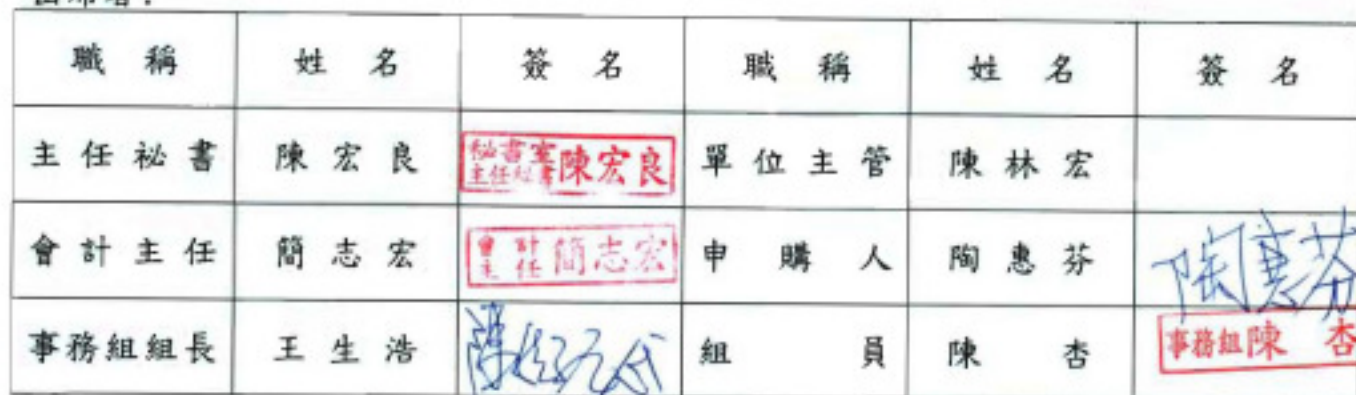 出席者：
職稱 姓名 簽名 職稱 姓名 簽名
主任祕書 陳宏良 秘書室主任秘書陳宏良 單位主管 陳林宏
會計主任 簡志宏 會計主任簡志宏 申購人 陶惠芬 陶惠芬
事務組組長 王生浩 組員 陳杏 事務組陳杏